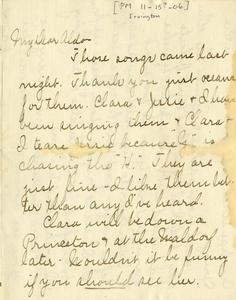 [PM 11-15-06]
Irvington
My dear Aldo-
Those songs came last
night. Thank you just oceans
for them. Clara & & I have
been singing them & Clara &
I tease because "I" is
chasing the "H." They are
just fine - I like them bet-
ter than any I've heard.
Clara will be down a
Princeton & at the Waldorf
later. Wouldn't it be funny
if you should see her.